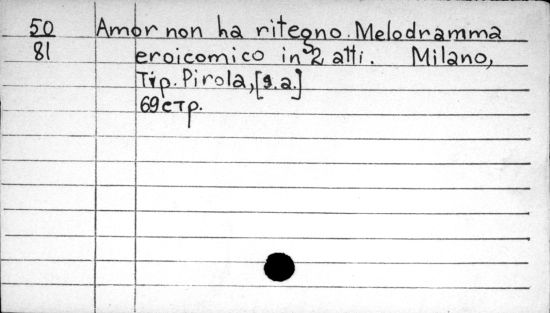 50 Amor non ha ritegno. Melodramma
81 eroicomico in 2 atti. Milano,
Tip. Pirola, [s.a.]
69 стр.